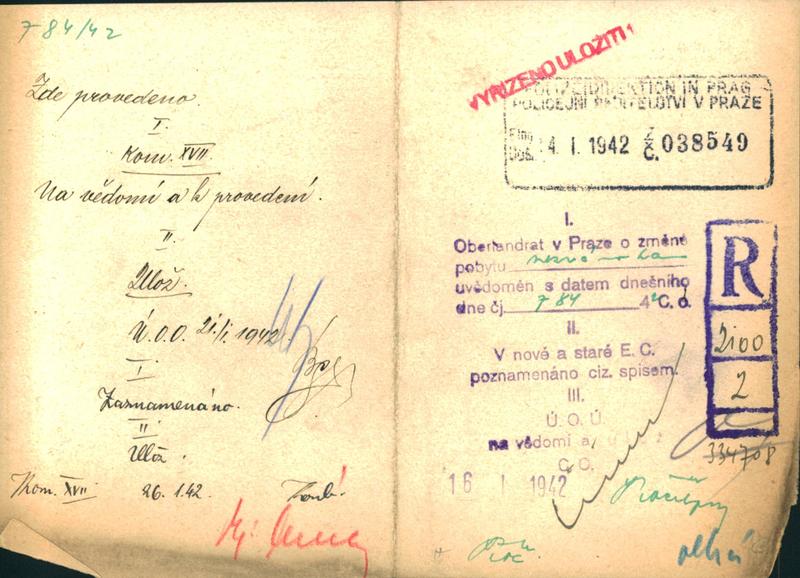 784/42
Zde provedeno.
I.
Kom. XVII.
Na vědomí a k provedení.
II.
Ulož.
Ú.O.O. 21./I. 1942.
I.
Zaznamenáno.
II.
Ulož.
Kom. XVII 26.1.42.
VYŘÍZENO ULOŽITI!
POLIZEIDIREKTION IN PRAG
POLICEJNÍ ŘEDITELSTVÍ V PRAZE
14. I. 1942 Z. Č. 038549
I.
Oberlandrat v Praze o změně
pobytu
uvědoměn s datem dnešního
dne čj. 784 42 C. o.
II.
V nové a staré E. C.
poznamenáno ciz. spisem.
III.
Ú. O. Ú.
na vědomí a
C. O.
16 I 1942
R
2100
2
334708